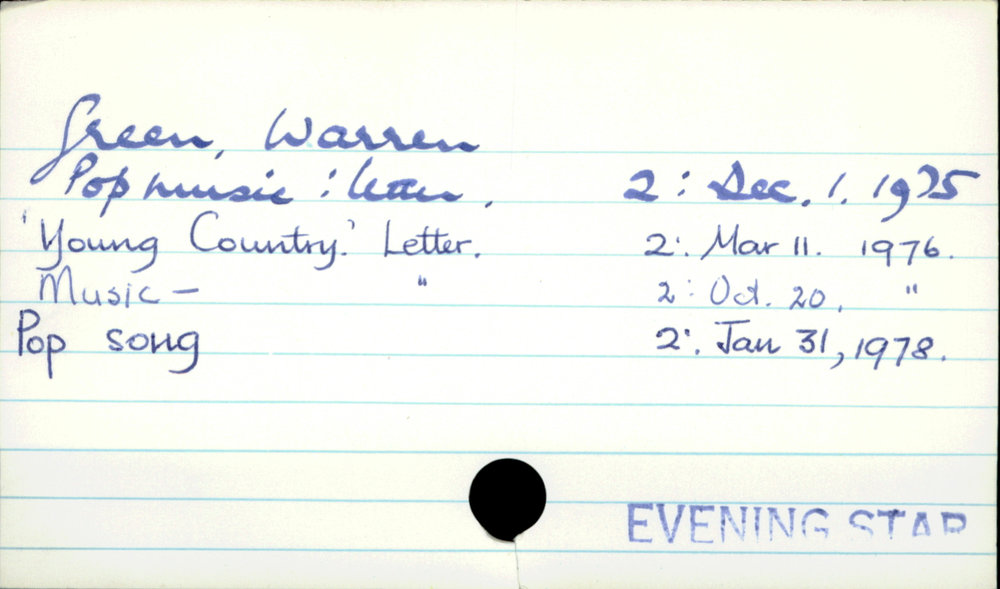 Green, Warren
Pop music : letter. 2: Dec. 1. 1975
'Young Country.' Letter. 2: Mar 11. 1976.
Music — " 2: Oct. 20. "
Pop song 2: Jan 31, 1978.
EVENING STAR